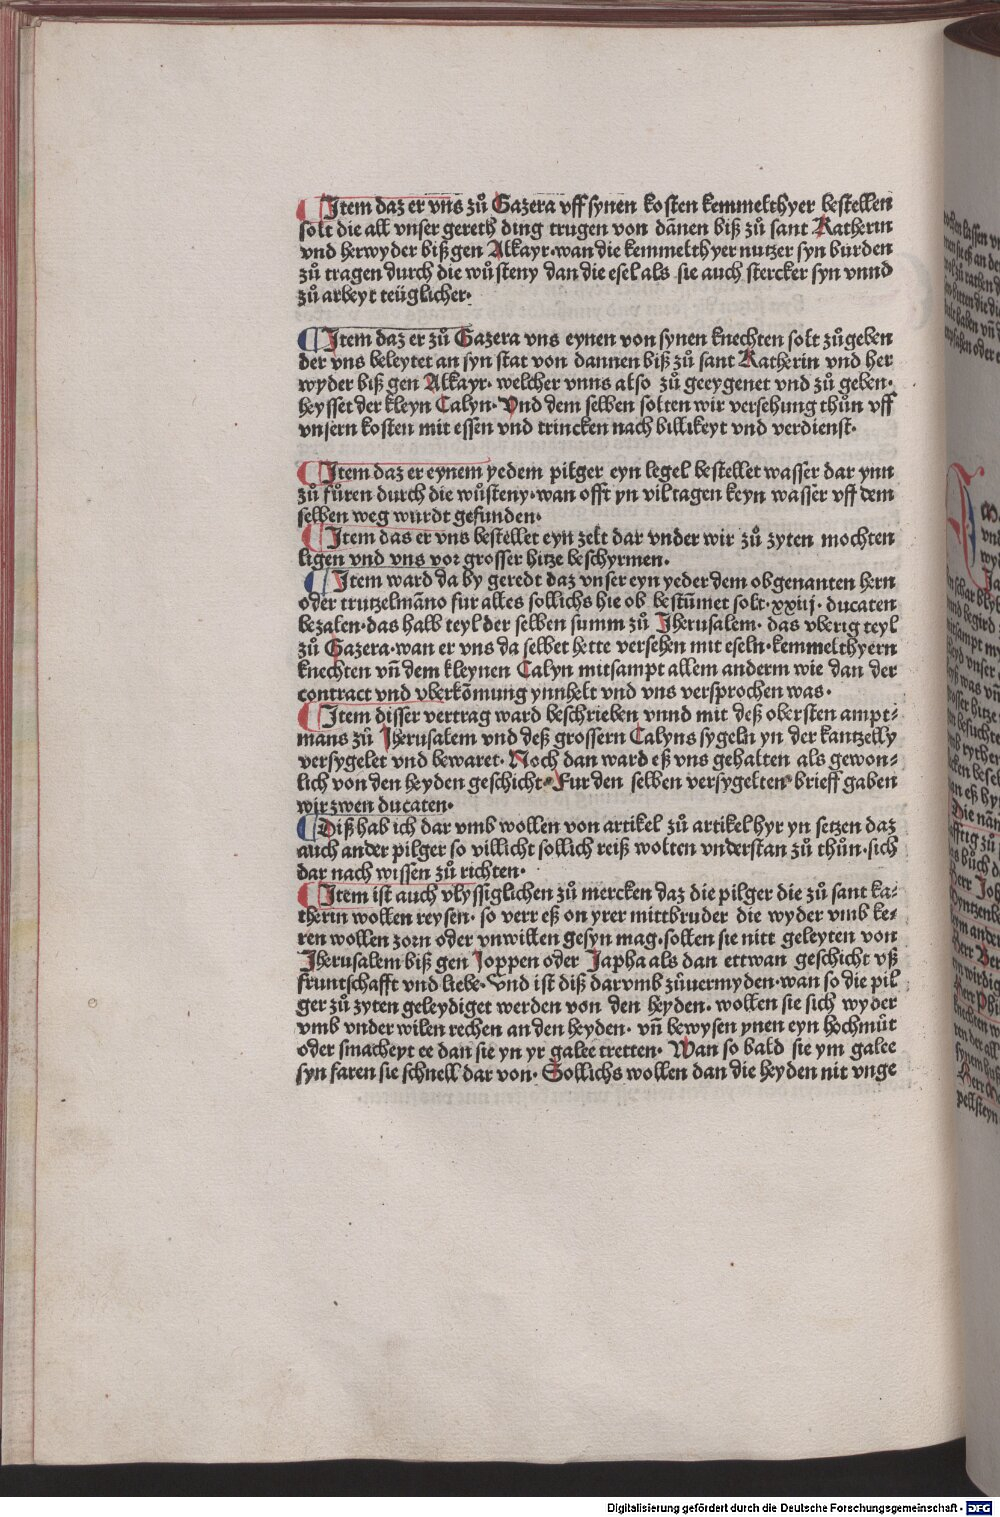 Item daz er vns zů Gazera vff synen kosten kemmelthyer bestellen
solt die all vnser gereth ding trugen von dānen biß zů sant Katherin
vnd herwyder biß gen Alkayr· wan die kemmelthyer nutzer syn burden
zů tragen durch die wůsteny dan die esel als sie auch stercker syn vnnd
zů arbeyt teüglicher·
Item daz er zů Gazera vns eynen von synen knechten solt zů geben
der vns beleytet an syn stat von dannen biß zů sant Katherin vnd her
wyder biß gen Alkayr· welcher vnns also zů geeygenet vnd zů geben·
heysset der kleyn Calyn· Vnd dem selben solten wir versehung thůn vff
vnsern kosten mit essen vnd trincken nach billikeyt vnd verdienst·
Item daz er eynem yedem pilger eyn legel bestellet wasser dar ynn
zů fůren durch die wůsteny· wan offt yn vil tagen keyn wasser vff dem
selben weg wurdt gefunden·
Item das er vns bestellet eyn zelt dar vnder wir zů zyten mochten
ligen vnd vns vor grosser hitze beschyrmen·
Item ward da by geredt daz vnser eyn yeder dem obgenanten hern
oder trutzelmāno fur alles sollichs hie ob bestūmet solt· xxiiij· ducaten
bezalen· das halb teyl der selben summ zů Jherusalem· das vberig teyl
zů Gazera· wan er vns da selbet hette versehen mit eseln· kemmelthyern
knechten vn̄ dem kleynen Calyn mitsampt allem anderm wie dan der
contract vnd vberkōmung ynnhelt vnd vns versprochen was·
Item disser vertrag ward beschrieben vnnd mit deß obersten ampt⸗
mans zů Jherusalem vnd deß grossern Calyns sygeln yn der kantzelly
versygelet vnd bewaret· Noch dan ward eß vns gehalten als gewon⸗
lich von den heyden geschicht· Fur den selben versygelten brieff gaben
wir zwen ducaten·
Diß hab ich dar vmb wollen von artikel zů artikel hyr yn setzen daz
auch ander pilger so villicht sollich reiß wolten vnderstan zů thůn· sich
dar nach wissen zů richten·
Item ist auch vlyssiglichen zů mercken daz die pilger die zů sant ka⸗
therin wollen reysen· so verr eß on yrer mittbruder die wyder vmb ke⸗
ren wollen zorn oder vnwillen gesyn mag· sollen sie nitt geleyten von
Jherusalem biß gen Joppen oder Japha als dan ettwan geschicht vß
fruntschafft vnd liebe· Vnd ist diß darvmb zůuermyden· wan so die pil
ger zů zyten geleydiget werden von den heyden· wollen sie sich wyder
vmb vnder wilen rechen an den heyden· vn̄ bewysen ynen eyn hochmůt
oder smacheyt ee dan sie yn yr galee tretten· Wan so bald sie ym galee
syn faren sie schnell dar von· Sollichs wollen dan die heyden nit vnge
Digitalisierung gefördert durch die Deutsche Forschungsgemeinschaft - DFG